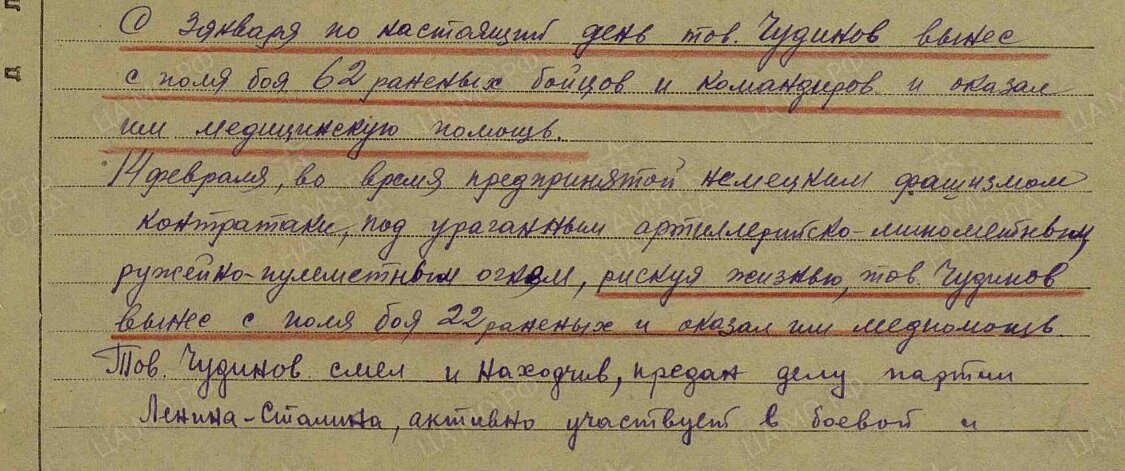 С 3 января по настоящий день тов. Чудинов вынес
с поля боя 62 раненых бойцов и командиров и оказал
им медицинскую помощь.
14 февраля, во время предпринятой немецким фашизмом
контратаки, под ураганным артиллерийско-минометным,
ружейно-пулеметным огнем, рискуя жизнью, тов. Чудинов
вынес с поля боя 22 раненых и оказал им медпомощь
Тов. Чудинов смел и находчив, предан делу партии
Ленина-Сталина, активно участвует в боевой и